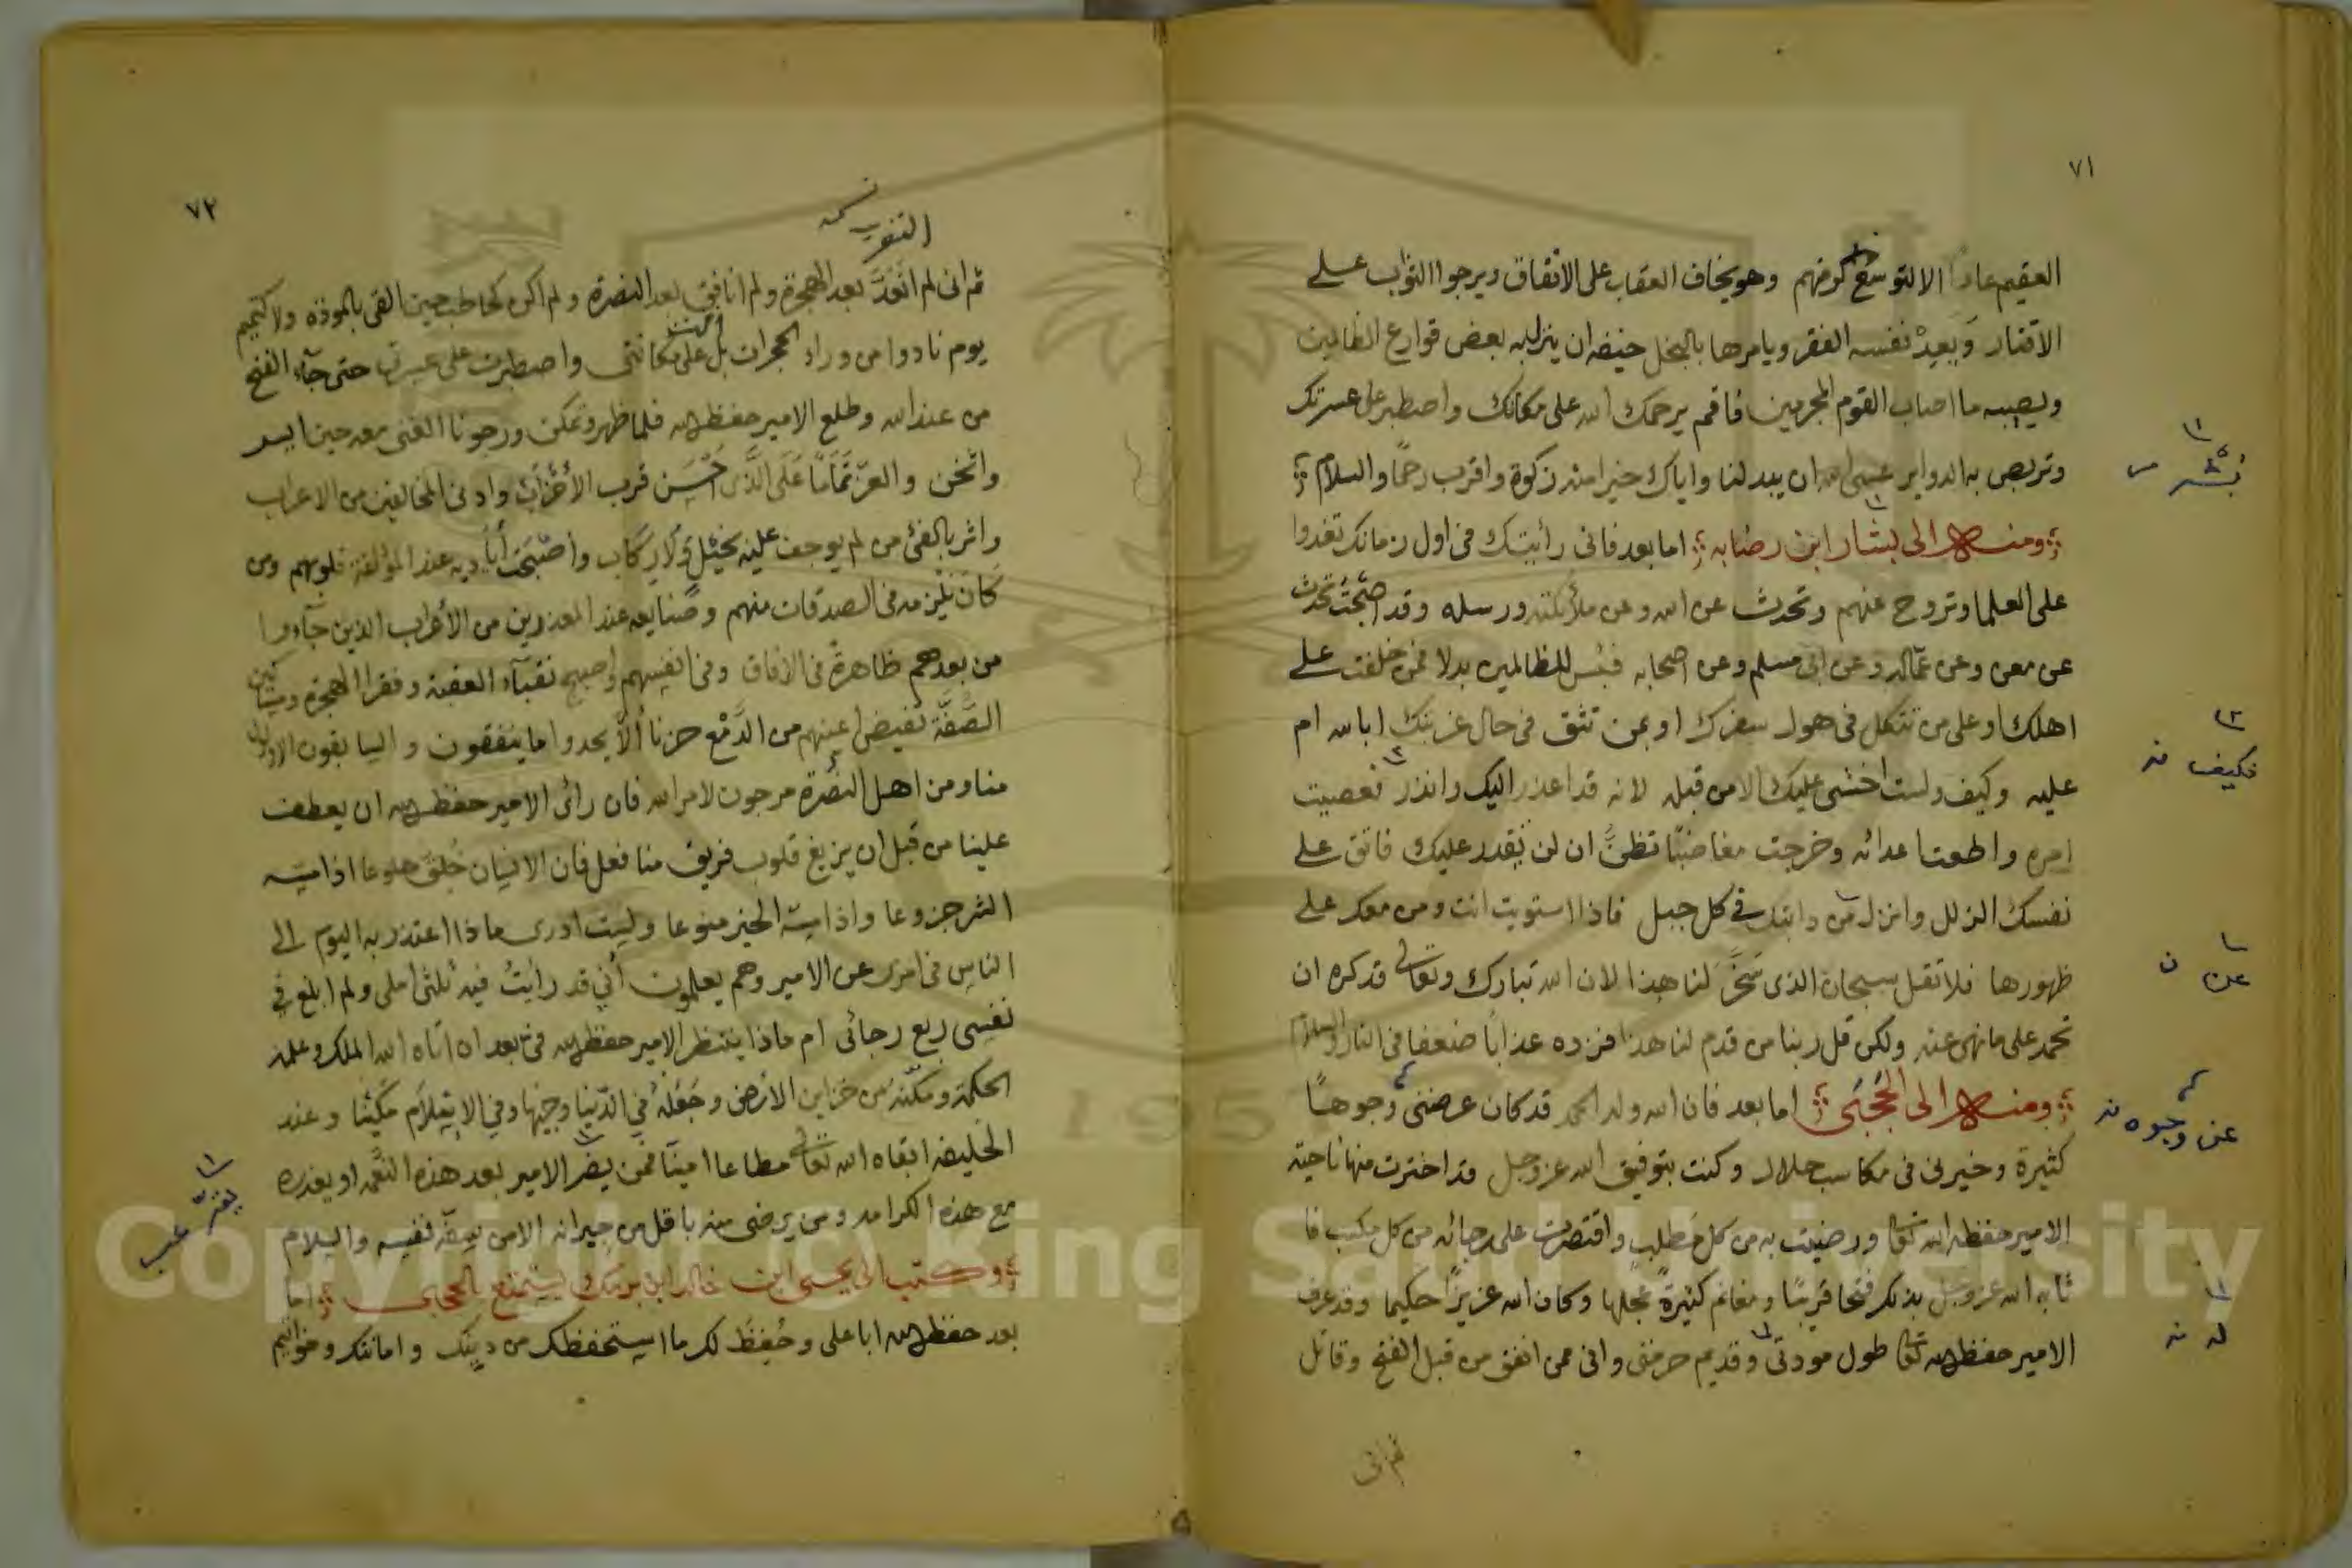 ٧١
العقيم عادا الا لتوسع كرمهم وهو يخاف العقاب على الانفاق ويرجوا الثواب على
الاقتار ويعد نفسه الفقر ويامرها بالبخل خيفه ان ينزل به بعض قوارع الظالمين
ويصيبه ما اصاب القوم المجرمين فاقم يرحمك الله على مكانك واصطبر على عسرتك
وتربص به الدواير عسى الله ان يبدلنا واياك خيرا منه زكوة واقرب رحمًا والسلام
ومنه الى بشار ابن رضابه اما بعد فانى رأيتك فى اول زمانك تغدوا
على العلما وتروح عنهم وتحدث عن الله وعن ملائكته ورسله وقد اصبحت تحدث
عن معن وعن عماله وعن ابى مسلم وعن اصحابه فبئس للظالمين بدلا فمن خلفت على
اهلك او على من تتكل فى هول سفرك او بمن تثق فى حال غربتك ابالله ام
عليه وكيف ولست اخشى عليك الا من قبله لانه قد اعذر اليك وانذر فعصيت
امره واطعت اعدائه وخرجت مغاضبًا تظن ان لن يقدر عليك فاتق على
نفسك الزلل وانزل من دابتك في كل جبل فاذا استويت انت ومن معك على
ظهورها فلا تقل سبحان الذى سخر لنا هذا لان الله تبارك وتعالى قد كره ان
تحمد على ما نهى عنه ولكن قل ربنا من قدم لنا هذا فزده عذابًا ضعفا فى النار والسلام
ومنه الى الحجبى اما بعد فان الله وله الحمد قد كان عرضنى وجوهًا
كثيرة وخيرنى فى مكاسب حلال وكنت بتوفيق الله عز وجل قد اخترت منها ناحية
الامير حفظه الله تعالى ورضيت به من كل مطلب واقتصرت على رجائه من كل مكسب فا
ثابه الله عز وجل بذلك فتحا قريبًا ومغانم كثيرة عجلها وكان الله عزيزًا حكيما وقد عرف
الامير حفظه الله تعالى طول مودتى وقديم حرمتى وانى ممن انفق من قبل الفتح وقاتل
ثم انى
بشر
فكيف
عن
عن وجوه
له
٧٢
ثم انى لم اتعد بعد الهجرة ولم انافق بعد النصرة ولم اكن كحاطب حين القى بالمودة ولا كتميم
يوم نادوا من وراء الحجرات بل اقمت على مكانتى واصطبرت على عسرتى حتى جآء الفتح
من عند الله وطلع الامير حفظه الله فلما ظهر وتمكن ورجونا الغنى معه حين ايسر
واثخن والعز تمامًا على الذى احسن قرب الأحزاب وادنى المخالفين من الاعراب
واثر بالفئ من لم يوجف عليه بخيل ولا ركاب وأصبحت أياديه عند المؤلفة قلوبهم ومن
كان يلمزه فى الصدقات منهم وصنايعه عند المعذرين من الأعراب الذين جآءوا
من بعدهم ظاهرة فى الافاق وفى انفسهم واصبح نقبآء العقبة وفقرا الهجرة ومساكين
الصفة تفيض اعينهم من الدمع حزنا ألا يجدوا ما ينفقون والسابقون الاولون
منا ومن اهل النصرة مرجون لامر الله فان رائى الامير حفظه الله ان يعطف
علينا من قبل ان يزيغ قلوب فريق منا فعل فان الانسان خلق هلوعا اذا مسه
الشر جزوعا واذا مسه الخير منوعا ولست ادرى ماذا اعتذر به اليوم الى
الناس فى امرى عن الامير وهم يعلمون أني قد رأيت فيه ثلثى املى ولم ابلغ في
نفسى ربع رجائى ام ماذا ينتظر الامير حفظه الله فى بعد ان اتاه الله الملك وعلمه
الحكمة ومكنه من خزاين الارض وجعله في الدنيا وجيها وفي الاسلام مكينا وعند
الخليفه ابقاه الله تعالى مطاعا امينًا فمن يضر الامير بعد هذه النعمه او يعذره
مع هذه الكرامه ومن يرضى منه باقل من جيرانه الا من سفه نفسه والسلام
وكتب الى يحيى ابن خالد ابن برمك يستمتع بالحجبى اما
بعد حفظ الله ابا على وحفظ لك ما استحفظك من دينك وامانتك وخواتيم